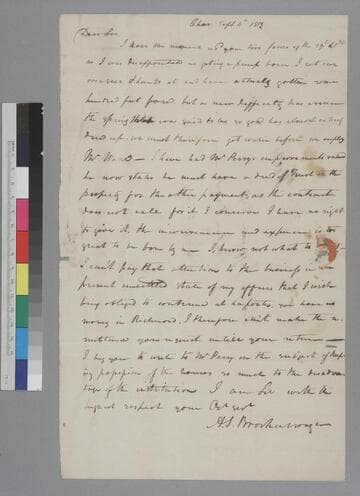 Char Sept 6th 1819
Dear Sir
I have this moment recd your two favors of the 29th ulto
as I was disappointed in getting a pump borer I set our
overseer & hands at and have actually gotten one
hundred feet bored, but a new difficulty has arisen
the spring that was said to be so good has almost entirely
dried up. we must therefore get water before we employ
Mr Ward — I have had Mr Perry's improvements valued
he now states he must have a deed of trust on the
property for the other payments, as the contract
does not call for it I conceive I have no right
to give it, the inconvenience and expence is too
great to be born by me I know not what to
I can't pay that attention to the business in the
present unsettled state of my affairs that I wish
being obliged to continue at we have no
money in Richmond, I therefore can't make the re-
mittance you request untill your return —
I beg you to write to Mr Perry on the subject of keep
ing possession of the houses so much to the disadvan
tage of the institution I am Sir with the
highest respect your Obt Svt
A. S. Brockenbrough